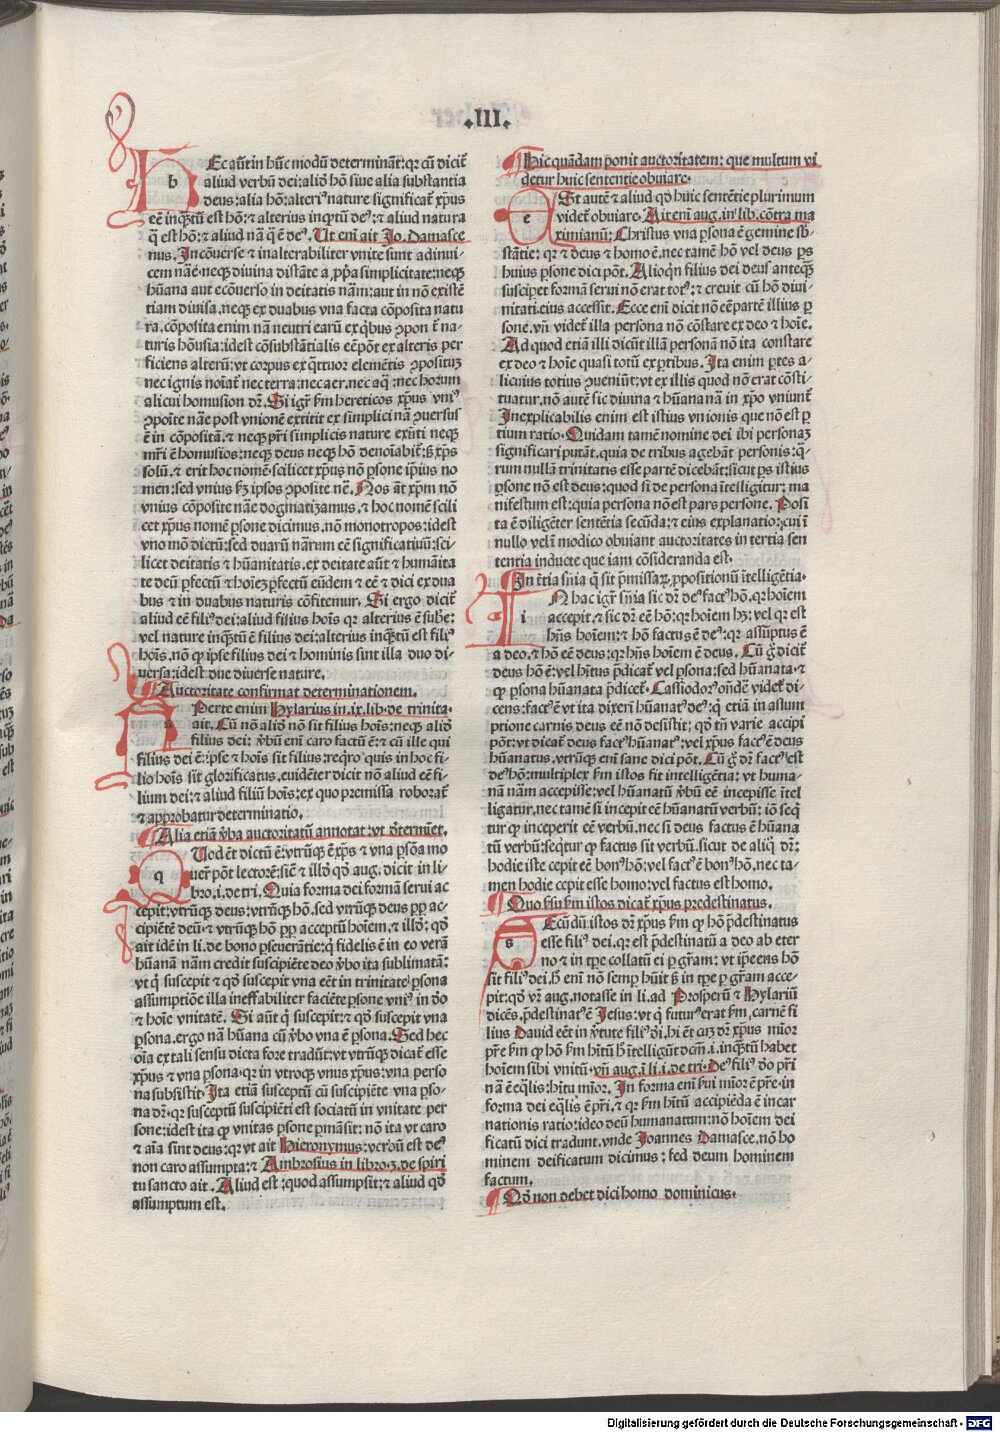 .III.
Ec aūt in hūc modū determināt: qꝛ cū dicit̄
aliud verbū dei: aliō hō siue alia substantia
deus: alia hō: alteriꝰ nature significat̄ xp̄us
eē inq̄ꝫtū est hō: ⁊ alterius inq̄ꝫtū deꝰ: ⁊ aliud natura
q̄ est hō: ⁊ aliud nā q̄ ē deꝰ. Ut em̄ ait Jo. Damasce
nus. Incōuerse ⁊ inalterabiliter vnite sunt adinui-
cem nāe: neqꝫ diuina distāte a ꝓpͥa simplicitate: neqꝫ
hūana aut ecōuerso in deitatis nām: aut in nō existē
tiam diuisa. neqꝫ ex duabus vna facta cōposita natu
ra. cōposita enim nām neutri earū ex qͥbus ꝯpon t̄ na-
turis hōusia: idest cōsubstātialis eē pōt ex alteris per
ficiens alterū: vt corpus ex q̄ttuor elemētis ꝯpositum
nec ignis noīat̄ nec terra: nec aer. nec aq̄: nec horum
alicui homusion dꝛ. Si igr̄ ẜm hereticos xp̄us vniꝰ
ꝯpoīte nāe post vnionē extitit ex simplici nā ꝯuersus
ē in cōpositā. ⁊ neqꝫ pr̄i simplicis nature exn̄ti neqꝫ
mr̄i ē homusios: neqꝫ deus neqꝫ hō denoīabit̄: ẜꝫ xp̄s
solū. ⁊ erit hoc nomē scilicet xp̄us nō ꝑsone ip̄ius no
men: sed vnius ẜꝫ ipsos ꝯposite nāe. Nos āt xp̄m nō
vnius cōposite nāe dogmatizamus. ⁊ hoc nomē scili
cet xp̄us nomē ꝑsone dicimus. nō monotropos: idest
vno mō dictū: sed duarū nāꝛum eē significatiuū: sci-
licet deitatis ⁊ hūanitatis. ex deitate aūt ⁊ humāita
te deū ꝑfectū ⁊ hoīeꝫ ꝑfectū eūdem ⁊ eē ⁊ dici ex dua
bus ⁊ in duabus naturis cōfitemur. Si ergo dicit̄
aliud eē filiꝰ dei: aliud filius hoīs qꝛ alterius ē sub̄e:
vel nature inq̄ꝫtū ē filius dei: alterius inq̄ꝫtū est filiꝰ
hoīs. nō ꝙ ipse filius dei ⁊ hominis sint illa duo di-
uersa: idest due diuerse nature.
Auctoritate confirmat determinationem.
Perte enim Hylarius in .ix. lib. de trinita.
ait. Cū nō aliō nō sit filius hoīs: neqꝫ aliō
filius dei: v̄bū em̄ caro factū ē: ⁊ cū ille qui
filius dei ē: ip̄se ⁊ hoīs sit filius: reqͥro quis in hoc fi-
lio hoīs sit glorificatus. euidēter dicit nō aliud eē fi-
lium dei: ⁊ aliud filiū hoīs: ex quo premissa roborat̄
⁊ approbatur determinatio.
Alia etiā v̄ba auctoritatū annotat: vt determīet.
q Uod ēt dictū ē: vtrūqꝫ ē xp̄s ⁊ vna ꝑsōa mo
uer̄ pōt lectorē: siē ⁊ illō qō aug. dicit in li-
bro .i. de tri. Quia forma dei formā serui ac
cepit: vtrūqꝫ deus: vtrūqꝫ hō. sed vtrūqꝫ deus ꝓp ac-
cipiētē deū. ⁊ vtrūqꝫ hō ꝓp acceptū hoīem. ⁊ illō: qō
ait idē in li. de bono ꝑseuerātie: q̄ fidelis ē in eo verā
hūanā nām credit suscipiēte deo v̄bo ita sublimatā:
vt q̄ suscepit ⁊ qō suscepit vna eēt in trinitate ꝑsona
assumptiōe illa ineffabiliter faciēte ꝑsone vniꝰ in dō
⁊ hoīe vnitatē. Si aūt q̄ suscepit: ⁊ qō suscepit vna
ꝑsona. ergo nā hūana cū v̄bo vna ē ꝑsona. Sed hec
oīa ex tali sensu dicta fore tradūt: vt vtrūqꝫ dicat̄ esse
xp̄us ⁊ vna ꝑsona. qꝛ in vtroqꝫ vnus xp̄us: vna perso
na subsistit. Ita etiā susceptū cū suscipiēte vna ꝑso-
na dꝛ. qꝛ susceptū suscipiēti est sociatū in vnitate per
sone: idest ita ꝙ vnitas ꝑsone ꝑmāsit: nō ita vt caro
⁊ aīa sint deus: qꝛ vt ait Hieronymus: verbū est deꝰ
non caro assumpta: ⁊ Ambrosius in libro .3. de spiri
tu sancto ait. Aliud est: quod assumpsit: ⁊ aliud qō
assumptum est.
Hic quādam ponit auctoritatem: que multum vi
detur huic sententie obuiare.
e St autē ⁊ aliud qō huic sentētie plurimum
videt̄ obuiare. Ait em̄ aug. in lib. cōtra ma
ximianū: Christus vna ꝑsona ē gemine sb̄-
stātie: qꝛ ⁊ deus ⁊ homo ē. nec tamē hō vel deus ꝑs
huius ꝑsone dici pōt. Alioqͥn filius dei deus anteqꝫ
susciper̄ formā serui nō erat totꝰ: ⁊ creuit cū hō diui-
nitati eius accessit. Ecce em̄ dicit nō eē partē illius ꝑ
sone. vn̄ videt̄ illa persona nō cōstare ex deo ⁊ hoīe.
Ad quod etiā illi dicūt illā personā nō ita constare
ex deo ⁊ hoīe quasi totū ex ꝑtibus. Ita enim ꝑtes a-
licuius totius ꝯueniūt: vt ex illis quod nō erat cōsti-
tuatur. nō autē sic diuina ⁊ hūana nā in xp̄o vniunt̄
Inexplicabilis enim est istius vnionis que nō est ꝑ
tium ratio. Quidam tamē nomine dei ibi personaꝫ
significari putāt. quia de tribus agebāt personis: q̄-
rum nullā trinitatis esse partē dicebāt: sicut ꝑs istius
ꝑsone nō est deus: quod si de persona ītelligitur: ma
nifestum est: quia persona nō est pars persone. Posi
ta ē diligēter sentētia secūda: ⁊ eius explanatio: cui ī
nullo vel ī modico obuiant auctoritates in tertia sen
tentia inducte que iam cōsideranda est.
In t̄tia sn̄ia q̄ sit p̄missaꝝ ꝓpositionū ītelligētia.
i N hac igr̄ sn̄ia sic dꝛ deꝰ factꝰ hō. qꝛ hoīem
accepit. ⁊ sic dꝛ eē hō: qꝛ hoīem hꝫ: vel qꝛ est
hn̄s hoīem: ⁊ hō factus ē deꝰ: qꝛ assūptus ē
a deo. ⁊ hō eē deus: qꝛ hn̄s hoīem ē deus. Cū g̊ dicit̄
deus hō ē: vel hītus p̄dicat̄ vel ꝑsona: sed hūanata. ⁊
ꝙ ꝑsona hūanata p̄dicet̄. Cassiodorꝰ ondē videt̄ di-
cens: factꝰ ē vt ita dixerī hūanatꝰ deꝰ: q̄ etiā in assum
ptione carnis deus eē nō desistit: qō tn̄ varie accipi
pōt: vt dicat̄ deus factꝰ hūanatꝰ: vel xp̄us factꝰ ē deus
hūanatus. vtrūqꝫ em̄ sane dici pōt. Cū g̊ dꝛ factꝰ est
deꝰ hō: multiplex ẜm istos fit intelligētia: vt huma-
nā nām accepisse: vel hūanatū v̄bū eē incepisse ītel
ligatur. nec tamē si incepit eē hūanatū verbū: iō seq̄
tur ꝙ inceperit eē verbū. nec si deus factus ē hūana
tū verbū: seq̄tur ꝙ factus sit verbū. sicut de aliq̄ dꝛ:
hodie iste cepit eē bonꝰ hō: vel factꝰ ē bonꝰ hō. nec ta-
men hodie cepit esse homo: vel factus est homo.
Quo ẜm ẜm istos dicat̄ xp̄us predestinatus.
s Ecūdū istos dꝛ xp̄us ẜm ꝙ hō p̄destinatus
esse filiꝰ dei. qꝛ est p̄destinatū a deo ab eter
no ⁊ in tp̄e collatū ei ꝑ gr̄am: vt ip̄e ens hō
sit filiꝰ dei. ħ em̄ nō semꝑ hūit ẜꝫ in tp̄e ꝑ gr̄am acce-
pit: qō vr̄ aug. notasse in li. ad Prosperū ⁊ Hylariū
dicēs. p̄destinatꝰ ē Jesus: vt q̄ futurꝰ erat ẜm carnē fi
lius Dauid eēt in v̄tute filiꝰ dī. hi ēt cuꝫ dꝛ xp̄us mīor
pr̄e ẜm ꝙ hō ẜm hītū ħ ītelligūt dc̄m .i. inq̄ꝫtū habet
hoīem sibi vnitū. vn̄ aug. ī li. i. de tri. Deꝰ filiꝰ dō pr̄i
nā ē eq̄lis: hītu mīor. In forma em̄ ẜui mīor ē pr̄e. in
forma dei eq̄lis ē pr̄i. ⁊ qꝛ ẜm hītū accipiēda ē incar
nationis ratio: ideo deū humanatum: nō hoīem dei
ficatū dici tradunt. vnde Joannes Damasce. nō ho
minem deificatum dicimus: sed deum hominem
factum.
Qō non debet dici homo dominicus.
Digitalisierung gefördert durch die Deutsche Forschungsgemeinschaft - DFG